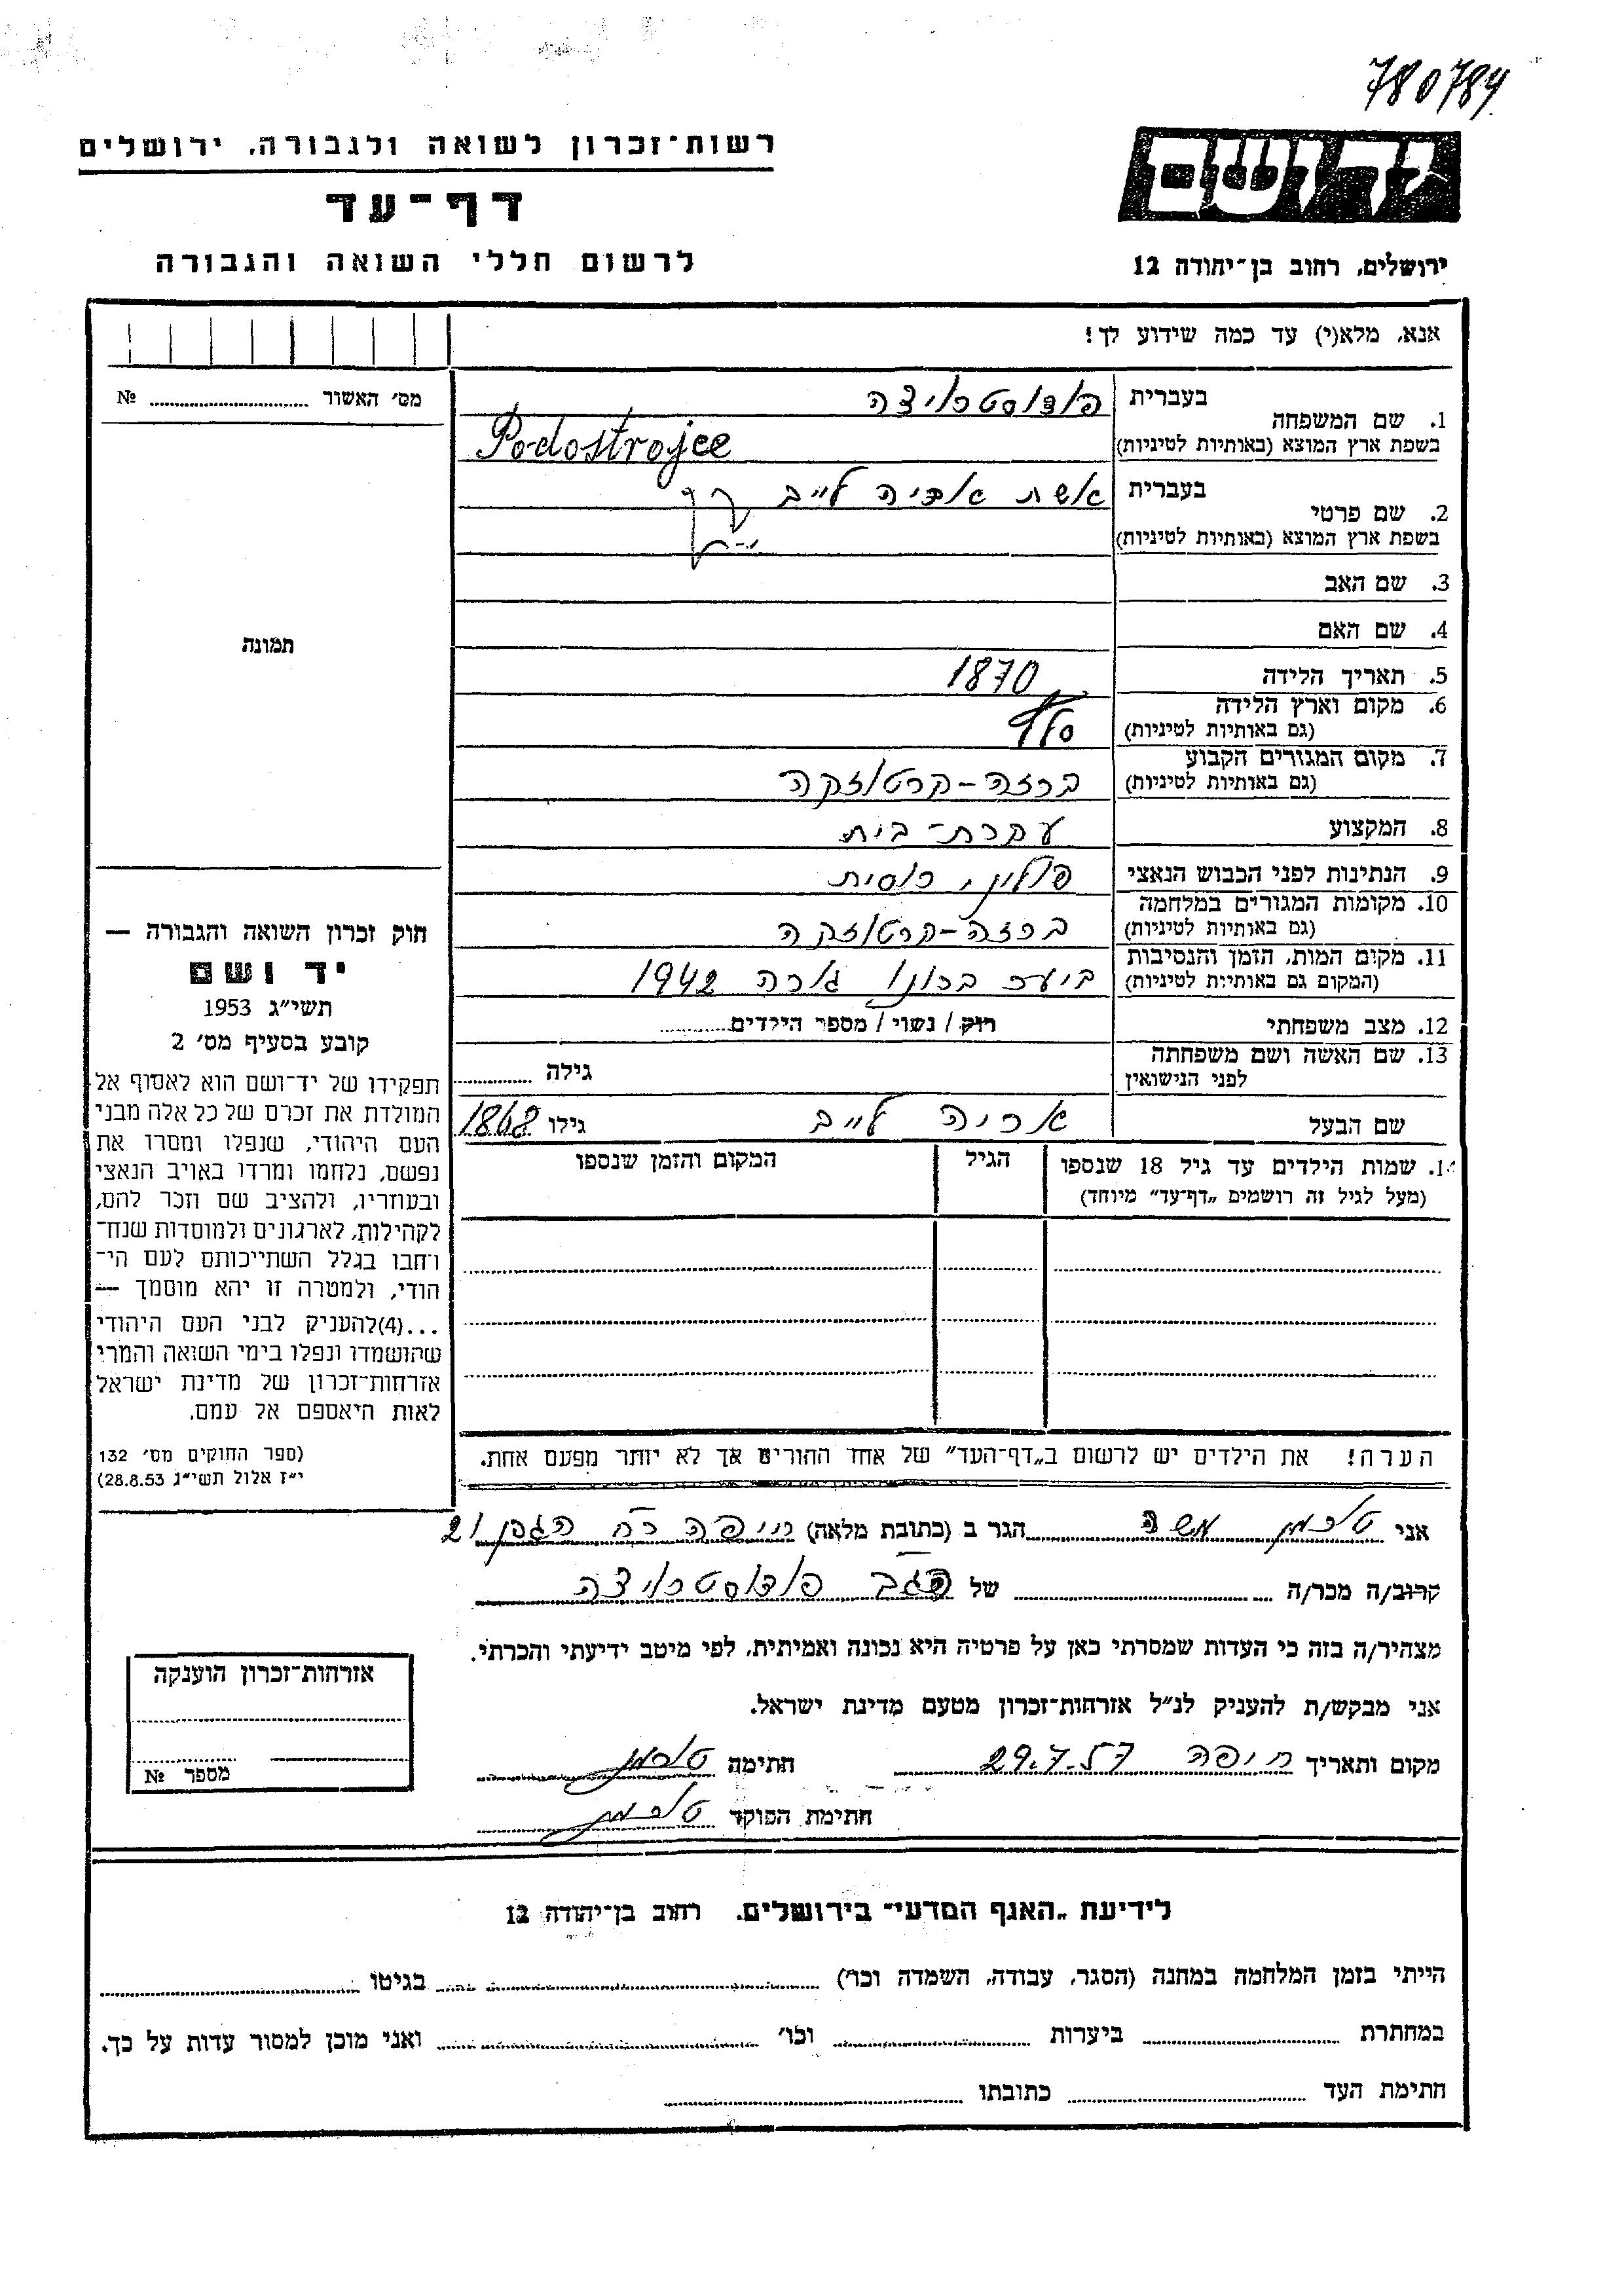 780784
יד ושם
רשות־זכרון לשואה ולגבורה, ירושלים
דף־עד
לרשום חללי השואה והגבורה
ירושלים, רחוב בן־יהודה 12
אנא, מלא(י) עד כמה שידוע לך!
מס׳ האשור № ....................
1. שם המשפחה בעברית פודוסטרויצה
בשפת ארץ המוצא (באותיות לטיניות) Podostrojce
2. שם פרטי בעברית אשת אריה לייב
בשפת ארץ המוצא (באותיות לטיניות)
3. שם האב
4. שם האם
תמונה
5. תאריך הלידה 1870
6. מקום וארץ הלידה
(גם באותיות לטיניות)
7. מקום המגורים הקבוע
(גם באותיות לטיניות) ברזה-קרטוזקה
8. המקצוע עקרת-בית
9. הנתינות לפני הכבוש הנאצי פולין, רוסית
10. מקומות המגורים במלחמה
(גם באותיות לטיניות) ברזה-קרטוזקה
11. מקום המות, הזמן והנסיבות
(המקום גם באותיות לטיניות) ביער ברונו גורה 1942
12. מצב משפחתי רוק / נשוי / מספר הילדים............
13. שם האשה ושם משפחתה
לפני הנישואין גילה ............
שם הבעל אריה לייב גילו 1868
1. שמות הילדים עד גיל 18 שנספו הגיל המקום והזמן שנספו
(מעל לגיל זה רושמים „דף־עד״ מיוחד)
הערה! את הילדים יש לרשום ב„דף־העד״ של אחד ההורים אך לא יותר מפעם אחת.
חוק זכרון השואה והגבורה —
יד ושם
תשי״ג 1953
קובע בסעיף מס׳ 2
תפקידו של יד־ושם הוא לאסוף אל
המולדת את זכרם של כל אלה מבני
העם היהודי, שנפלו ומסרו את
נפשם, נלחמו ומרדו באויב הנאצי
ובעוזריו, ולהציב שם וזכר להם,
לקהילות, לארגונים ולמוסדות שנח־
רבו בגלל השתייכותם לעם הי־
הודי, ולמטרה זו יהא מוסמך —
...(4)להעניק לבני העם היהודי
שהושמדו ונפלו בימי השואה והמרי
אזרחות־זכרון של מדינת ישראל
לאות היאספם אל עמם.
(ספר החוקים מס׳ 132
י״ז אלול תשי״ג 28.8.53)
אני טוכמן משה הגר ב (כתובת מלאה) חיפה רח הגפן 21
קרוב/ה מכר/ה .................... של הגב פודוסטרויצה
מצהיר/ה בזה כי העדות שמסרתי כאן על פרטיה היא נכונה ואמיתית, לפי מיטב ידיעתי והכרתי.
אני מבקש/ת להעניק לנ״ל אזרחות־זכרון מטעם מדינת ישראל.
מקום ותאריך חיפה 29.7.57 חתימה טוכמן
חתימת הפוקד טוכמן
אזרחות־זכרון הוענקה
מספר №
לידיעת „האגף המדעי״ בירושלים. רחוב בן־יהודה 12
הייתי בזמן המלחמה במחנה (הסגר, עבודה, השמדה וכו׳) .................... בגיטו ....................
במחתרת .................... ביערות .................... וכו׳ .................... ואני מוכן למסור עדות על כך.
חתימת העד .................... כתובתו ....................